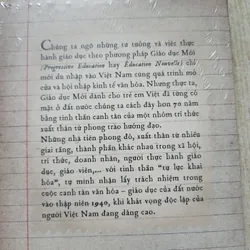 Chúng ta ngỡ những tư tưởng và việc thực
hành giáo dục theo phương pháp Giáo dục Mới
(Progressive Education hay Education Nouvelle) chỉ
mới du nhập vào Việt Nam cùng quá trình mở
cửa và hội nhập kinh tế văn hóa. Nhưng thực tế,
Giáo dục Mới dành cho trẻ em Việt đã từng có
mặt ở đất nước chúng ta cách đây hơn 70 năm
bằng tinh thần canh tân của một nhóm trí thức
xuất thân từ phong trào hướng đạo.
Những nhà tiên phong đó, xuất thân từ nhiều
giai tầng, thành phần khác nhau trong xã hội,
trí thức, doanh nhân, người thực hành giáo
dục, giáo viên,... với tinh thần "tự lực khai
hóa", tự mình nhận lấy trách nhiệm trong
cuộc canh tân văn hóa – giáo dục của đất nước
vào thập niên 1940, khi khát vọng độc lập của
người Việt Nam đang dâng cao.